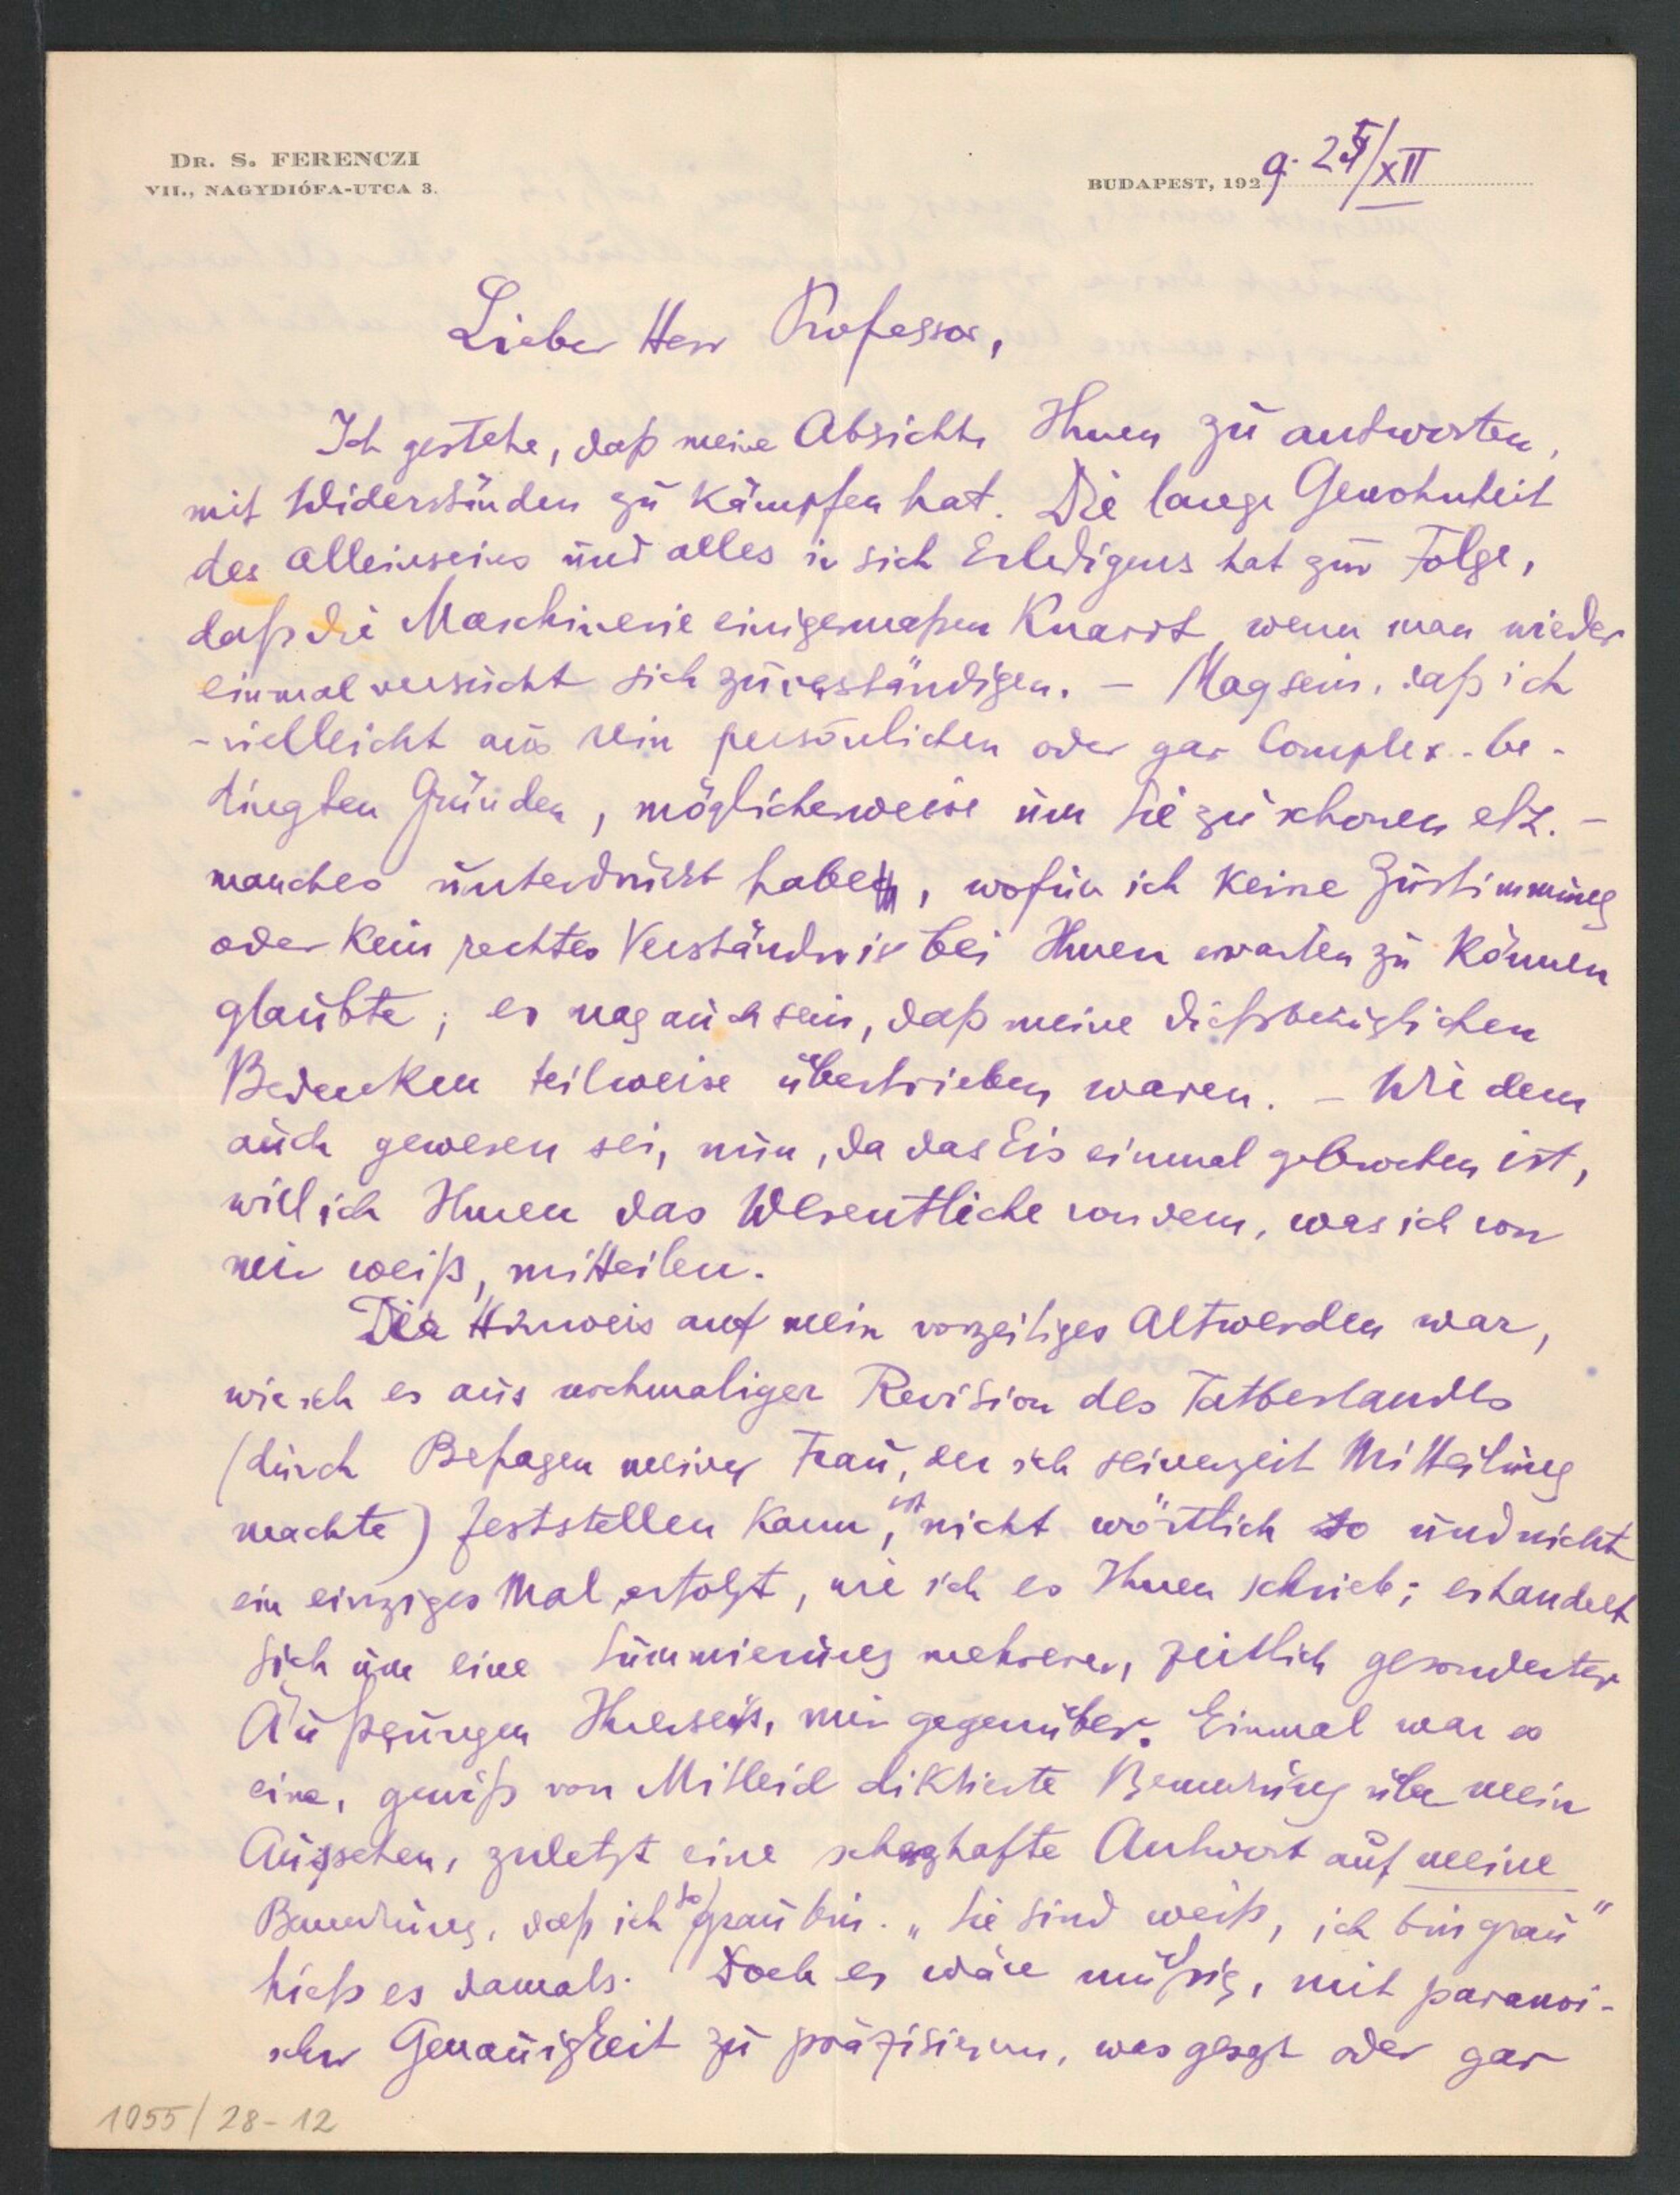 DR. S. FERENCZI
VII., NAGYDIÓFA-UTCA 3.
BUDAPEST, 1929. 25/XII
Lieber Herr Professor,
Ich gestehe, daß meine Absicht, Ihnen zu antworten,
mit Widerständen zu kämpfen hat. Die lange Gewohnheit
des Alleinseins und alles in sich Erledigens hat zur Folge,
daß die Maschinerie einigermaßen knarrt, wenn man wieder
einmal versucht sich zu verständigen. – Mag sein, daß ich
– vielleicht aus rein persönlichen oder gar Complex-be-
dingten Gründen, möglicherweise um Sie zu schonen etz. –
manches unterdrückt habe, wofür ich keine Zustimmung
oder kein rechtes Verständnis bei Ihnen erwarten zu können
glaubte; es mag auch sein, daß meine dießbezüglichen
Bedenken teilweise übertrieben waren. – Wie dem
auch gewesen sei, nun, da das Eis einmal gebrochen ist,
will ich Ihnen das Wesentliche von dem, was ich von
mir weiß, mitteilen.
Der Hinweis auf mein vorzeitiges Altwerden war,
wie ich es aus nochmaliger Revision des Tatbestandes
(durch Befragen meiner Frau, der ich seinerzeit Mitteilung
machte) feststellen kann, ist nicht wörtlich so und nicht
ein einziges Mal erfolgt, wie ich es Ihnen schrieb; es handelt
sich um eine Summierung mehrerer, zeitlich gesonderter
Äußerungen Ihrerseits, mir gegenüber. Einmal war es
eine, gewiß von Mitleid diktierte Bemerkung über mein
Aussehen, zuletzt eine scherzhafte Antwort auf meine
Bemerkung, daß ich so grau bin. „Sie sind weiß, ich bin grau"
hieß es damals. Doch es wäre müßig, mit paranoi-
scher Genauigkeit zu präzisieren, was gesagt oder gar
1055/28-12